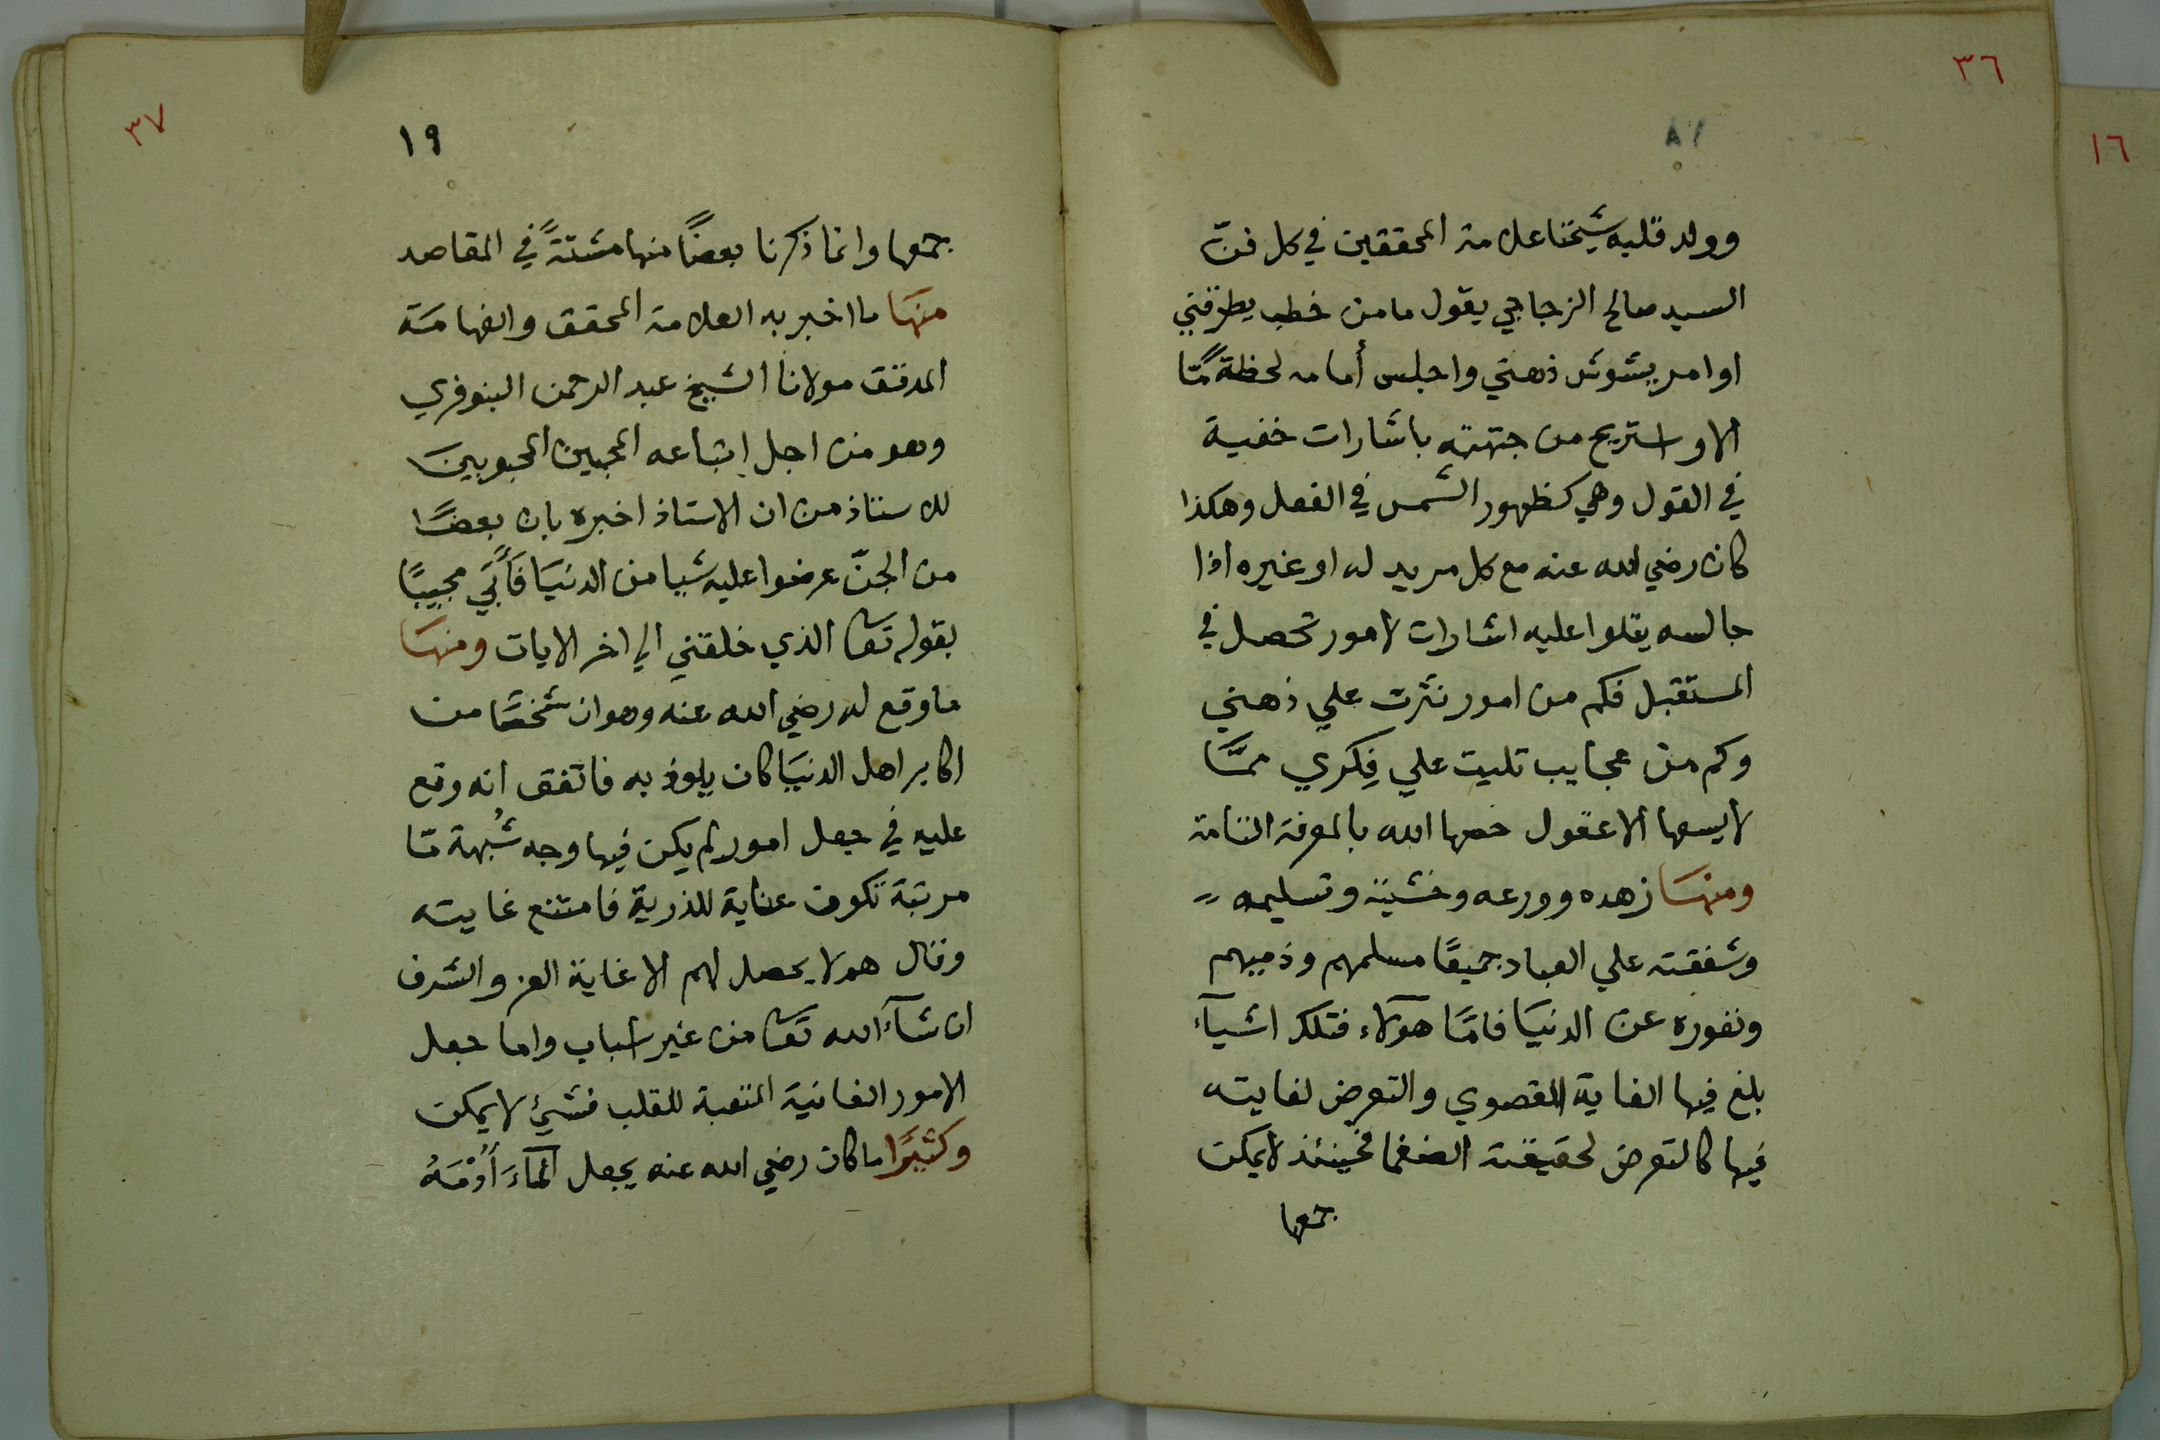 ٣٦
١٦
وولد قلبه شيخنا علامة المحققين في كل فنّ
السيد صالح الزجاجي يقول ما من خطب يطرقني
او امر يشوش ذهني واجلس أمامه لحظةً مّا
الا واستريح من جهته باشارات خفية
في القول وهي كظهور الشمس في الفعل وهكذا
كان رضي الله عنه مع كل مريد له او غيره اذا
جالسه يتلوا عليه اشارات لامور تحصل في
المستقبل فكم من امور نثرت علي ذهني
وكم من عجايب تليت علي فِكري ممَّا
لا يسعها الا عقول خصها الله بالمعرفة التامة
ومنهَا زهده وورعه وخشيته وتسليمه
وشفقته علي العباد جميعًا مسلمهم وذميهم
ونفوره عن الدنيَا فامَّا هؤلاء فتلك اشيآء
بلغ فيها الغاية القصوي والتعرض لغايته
فيها كالتعرض لحقيقته فحينئذ لا يمكن
جمعها
٣٧
١٩
جمعها وانما ذكرنا بعضًا منها مشتتةً في المقاصد
منهَا ما اخبر به العلامة المحقق والفهامَة
المدقق مولانا الشيخ عبد الرحمن البنوفري
وهو من اجل اتباعه المحبين المحبوبينَ
للاستاذ من ان الاستاذ اخبره بان بعضًا
من الجنّ عرضوا عليه شيا من الدنيَا فَأَبَي مجيبًا
بقوله تعا الذي خلقني الي اخر الايات ومنهَا
ما وقع له رضي الله عنه وهو ان شخصًا من
اكابر اهل الدنيَا كان يلوذ به فاتفق انه وقع
عليه في جعل امور لم يكن فيها وجه شُبهة مّا
مرتبة تكون عناية للذرية فامتنع غايته
وقال هم لا يحصل لهم الا غاية العز والشرف
ان شآء الله تعا من غير اسباب واما جعل
الامور الفانية المتعبة للقلب فشئ لا يمكن
وكثيرًا ما كان رضي الله عنه يجعل المآءَ أُدْمَهُ